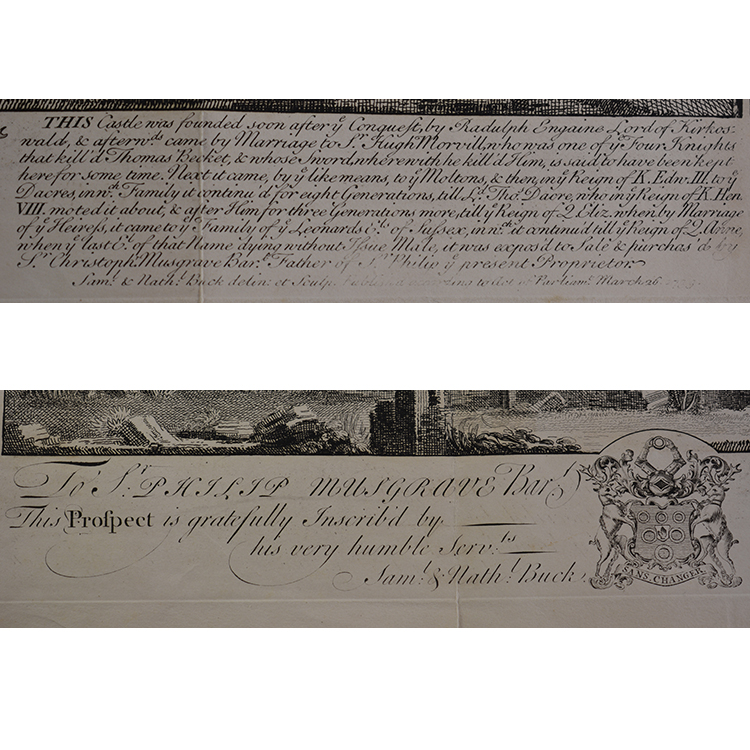 THIS Castle was founded soon after yͤ Conquest, by Radulph Engaine Lord of Kirkos=
wald, & afterwᵈˢ came by Marriage to Sʳ Hugh Morvill, who was one of yͤ Four Knights
that kill'd Thomas Becket, & whose Sword, wherewith he kill'd Him, is said to have been kept
here for some time. Next it came, by yͤ like means, to yͤ Moltons, & then, in yͤ Reign of K. Edw. III. to yͤ
Dacres, in wᶜʰ Family it continu'd for eight Generations, till Lᵈ Thoˢ Dacre, who in yͤ Reign of K. Hen
VIII. moted it about, & after Him for three Generations more, till yͤ Reign of Q Eliz. when by Marriage
of yͤ Heiress, it came to yͤ Family of yͤ Leonards Eˡˢ of Sussex, in wᶜʰ it continu'd till yͤ Reign of Q. Anne,
when yͤ last Eˡ of that Name dying without Issue Male, it was expos'd to Sale & purchas'd by
Sʳ Christophʳ Musgrave Barᵗ Father of Sʳ Philip yͤ present Proprietor.
Samˡ & Nathˡ Buck delinᵗ et Sculpᵗ Publish'd according to Act of Parliamᵗ March 26.
To Sʳ PHILIP MUSGRAVE Barᵗ
This Proſpect is gratefully Inscrib'd by
his very humble Servᵗˢ
Samˡ & Nathˡ Buck.
SANS CHANGER